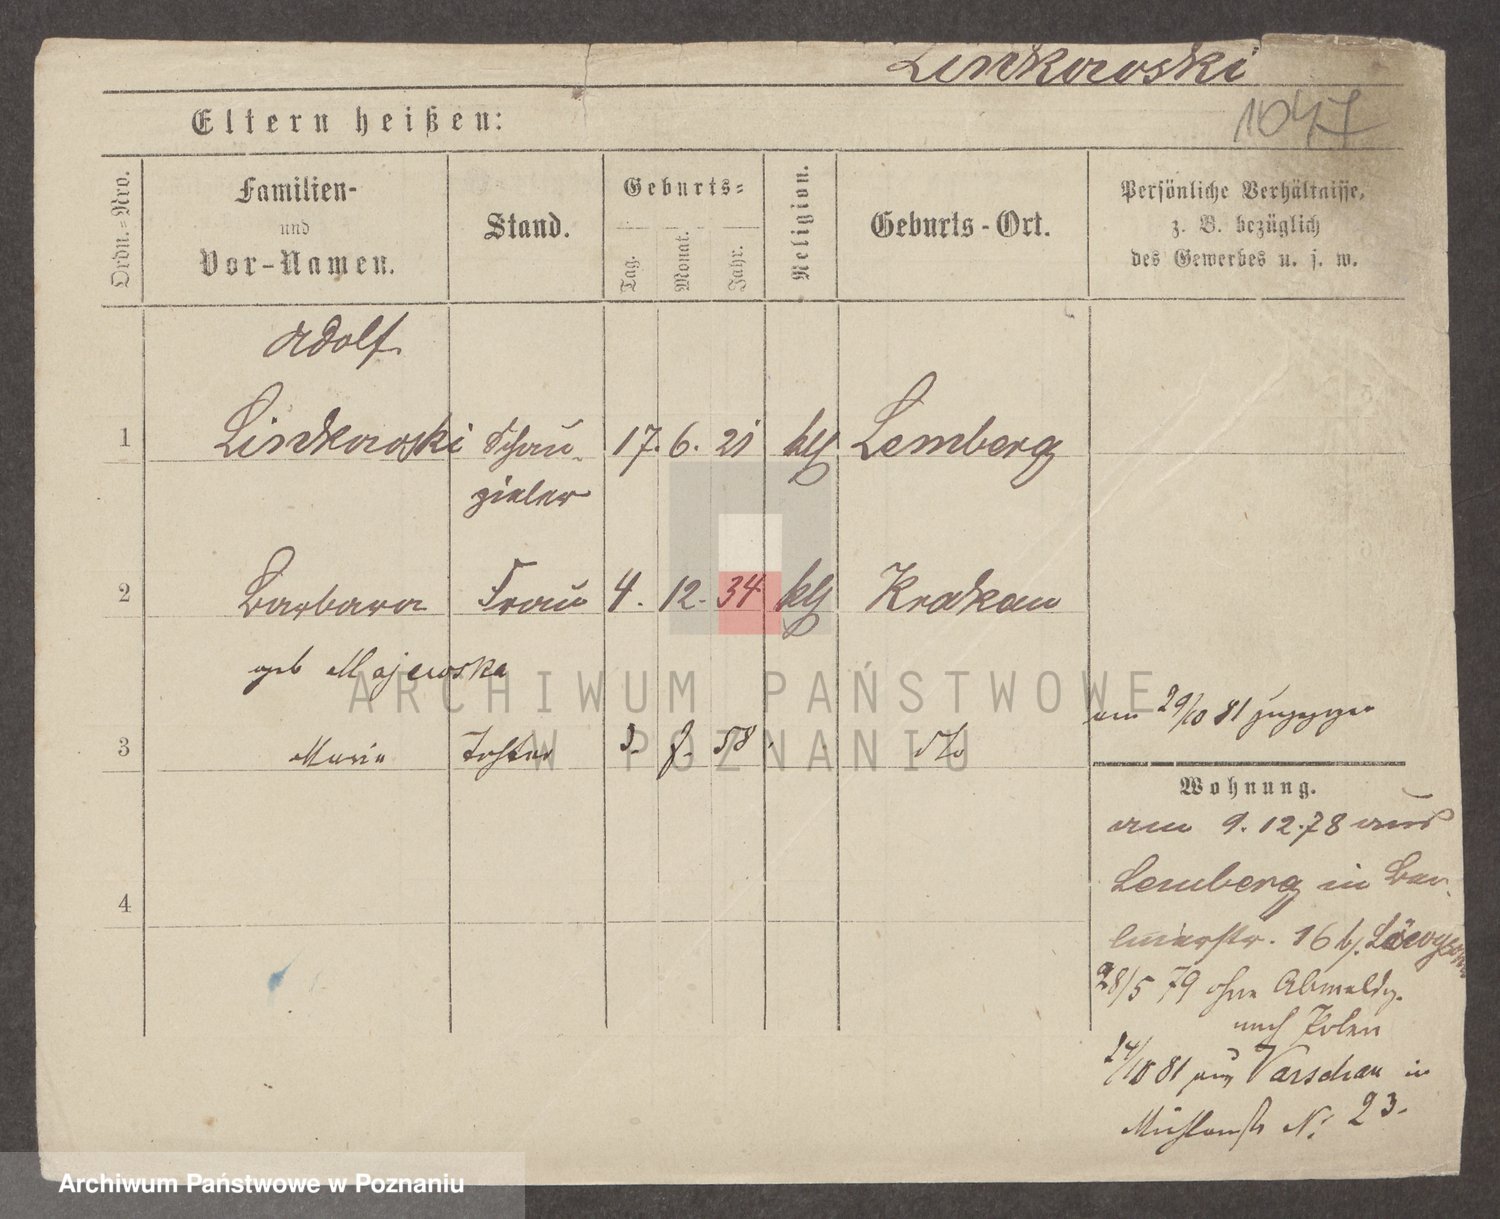 Linkowski
1047
Eltern heißen:
Ordn.-Nro.
Familien-
und
Vor-Namen.
Stand.
Geburts-
Tag.
Monat.
Jahr.
Religion.
Geburts-Ort.
Persönliche Verhältnisse,
z. B. bezüglich
des Gewerbes u. s. w.
Adolf
1 Linkowski Schau- 17. 6. 21 kth Lemberg
spieler
2 Barbara Frau 4. 12. 34 kth Krakau
geb Majewska
3 Marie Tochter 58 dto
am 29/10 81 zugezogen
Wohnung.
am 9. 12. 78 aus
Lemberg in
16 b/
28/5 79 ohne Abmeldg.
nach Polen
24/10 81 aus Warschau in
Mühlenstr No 23.
4
ARCHIWUM PAŃSTWOWE
W POZNANIU
Archiwum Państwowe w Poznaniu